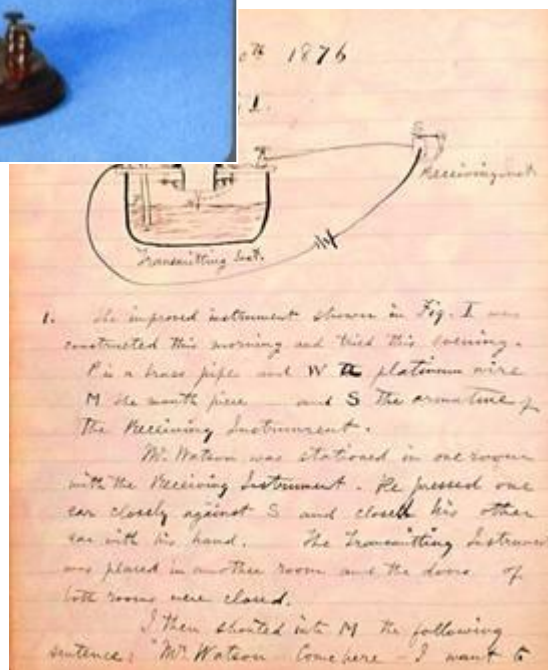 0th 1876
1.
S
Receiving Inst.
Transmitting Inst.
1. The improved instrument shown in Fig. I was
constructed this morning and tried this evening.
P is a brass pipe and W the platinum wire
M the mouth piece and S the armature of
the Receiving Instrument.
Mr. Watson was stationed in one room
with the Receiving Instrument. He pressed one
ear closely against S and closed his other
ear with his hand. The Transmitting Instrument
was placed in another room and the doors of
both rooms were closed.
I then shouted into M the following
sentence: "Mr. Watson - Come here - I want to